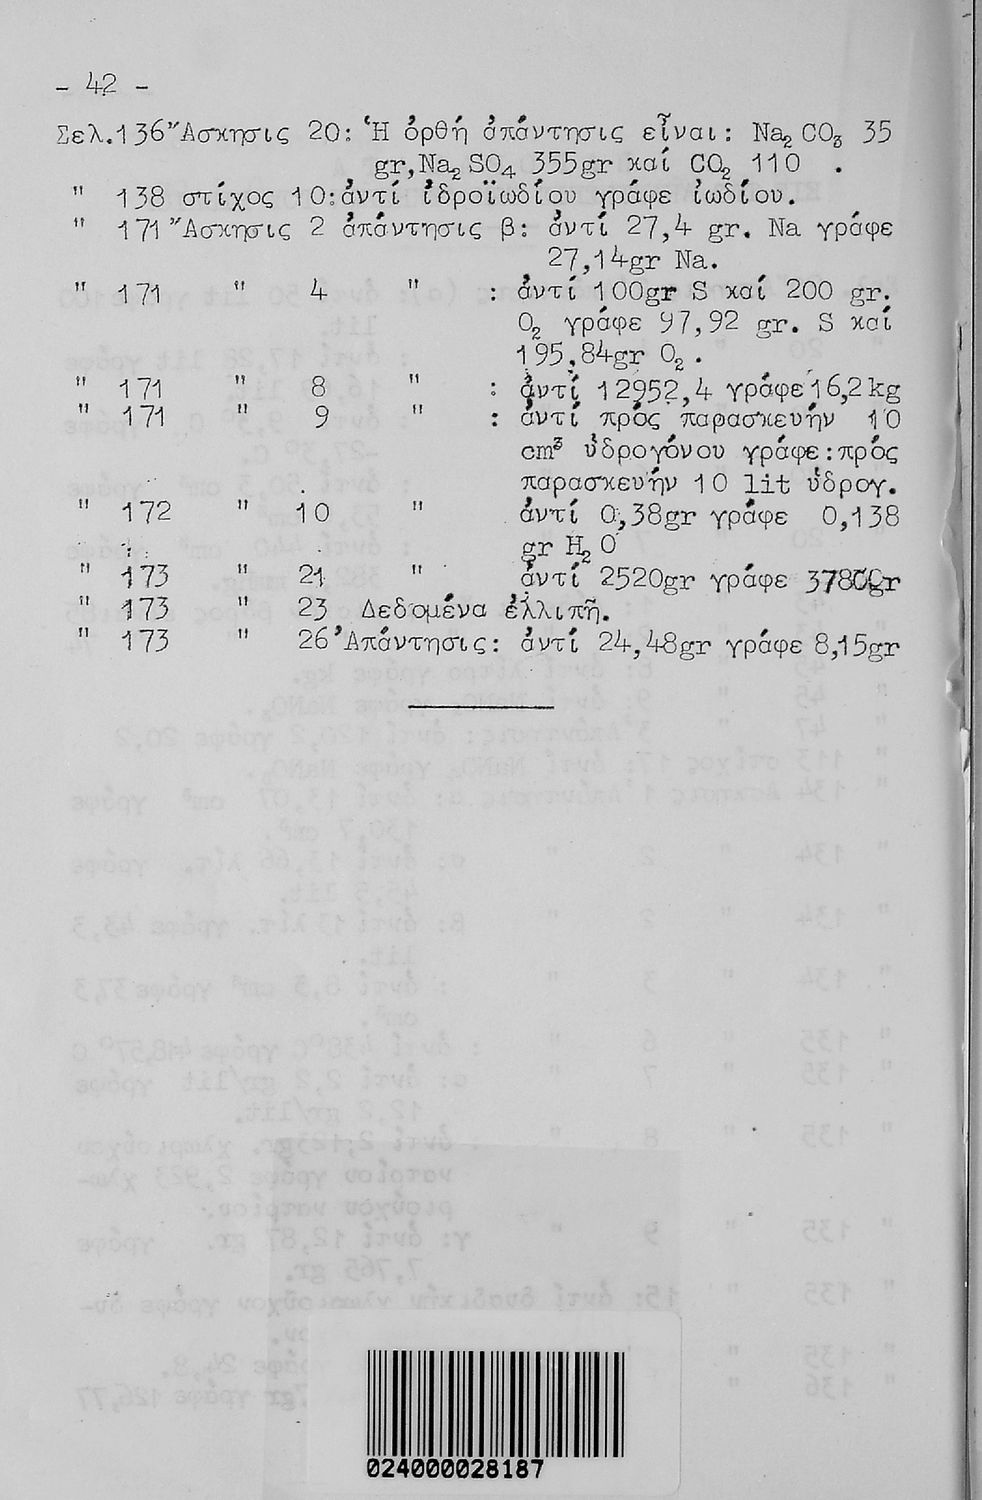 - 42 -
Σελ.136 Ἄσκησις 20: Ἡ ὀρθή ἀπάντησις εἶναι: Na₂CO₃ 35
gr, Na₂SO₄ 355gr καί CO₂ 110 .
" 138 στίχος 10: ἀντί ἱδροϊωδίου γράφε ἰωδίου.
" 171 Ἄσκησις 2 ἀπάντησις β: ἀντί 27,4 gr. Na γράφε
27,14gr Na.
" 171 " 4 " : ἀντί 100gr S καί 200 gr.
O₂ γράφε 97,92 gr. S καί
195,84gr O₂.
" 171 " 8 " : ἀντί 12952,4 γράφε 16,2kg
" 171 " 9 " : ἀντί πρός παρασκευήν 10
cm³ ὑδρογόνου γράφε: πρός
παρασκευήν 10 lit ὑδρογ.
" 172 " 10 " ἀντί 0,38gr γράφε 0,138
gr H₂O
" 173 " 21 " ἀντί 2520gr γράφε 3780gr
" 173 " 23 Δεδομένα ἐλλιπῆ.
" 173 " 26 Ἀπάντησις: ἀντί 24,48gr γράφε 8,15gr
024000028187